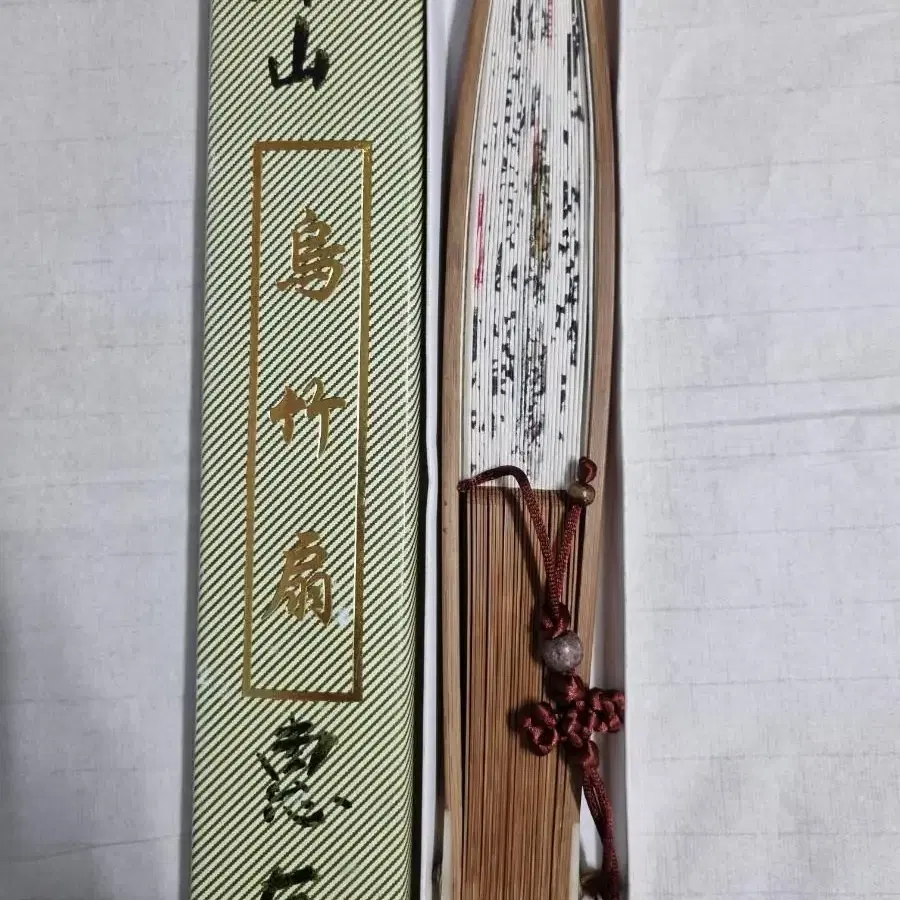 山
烏竹扇
惠